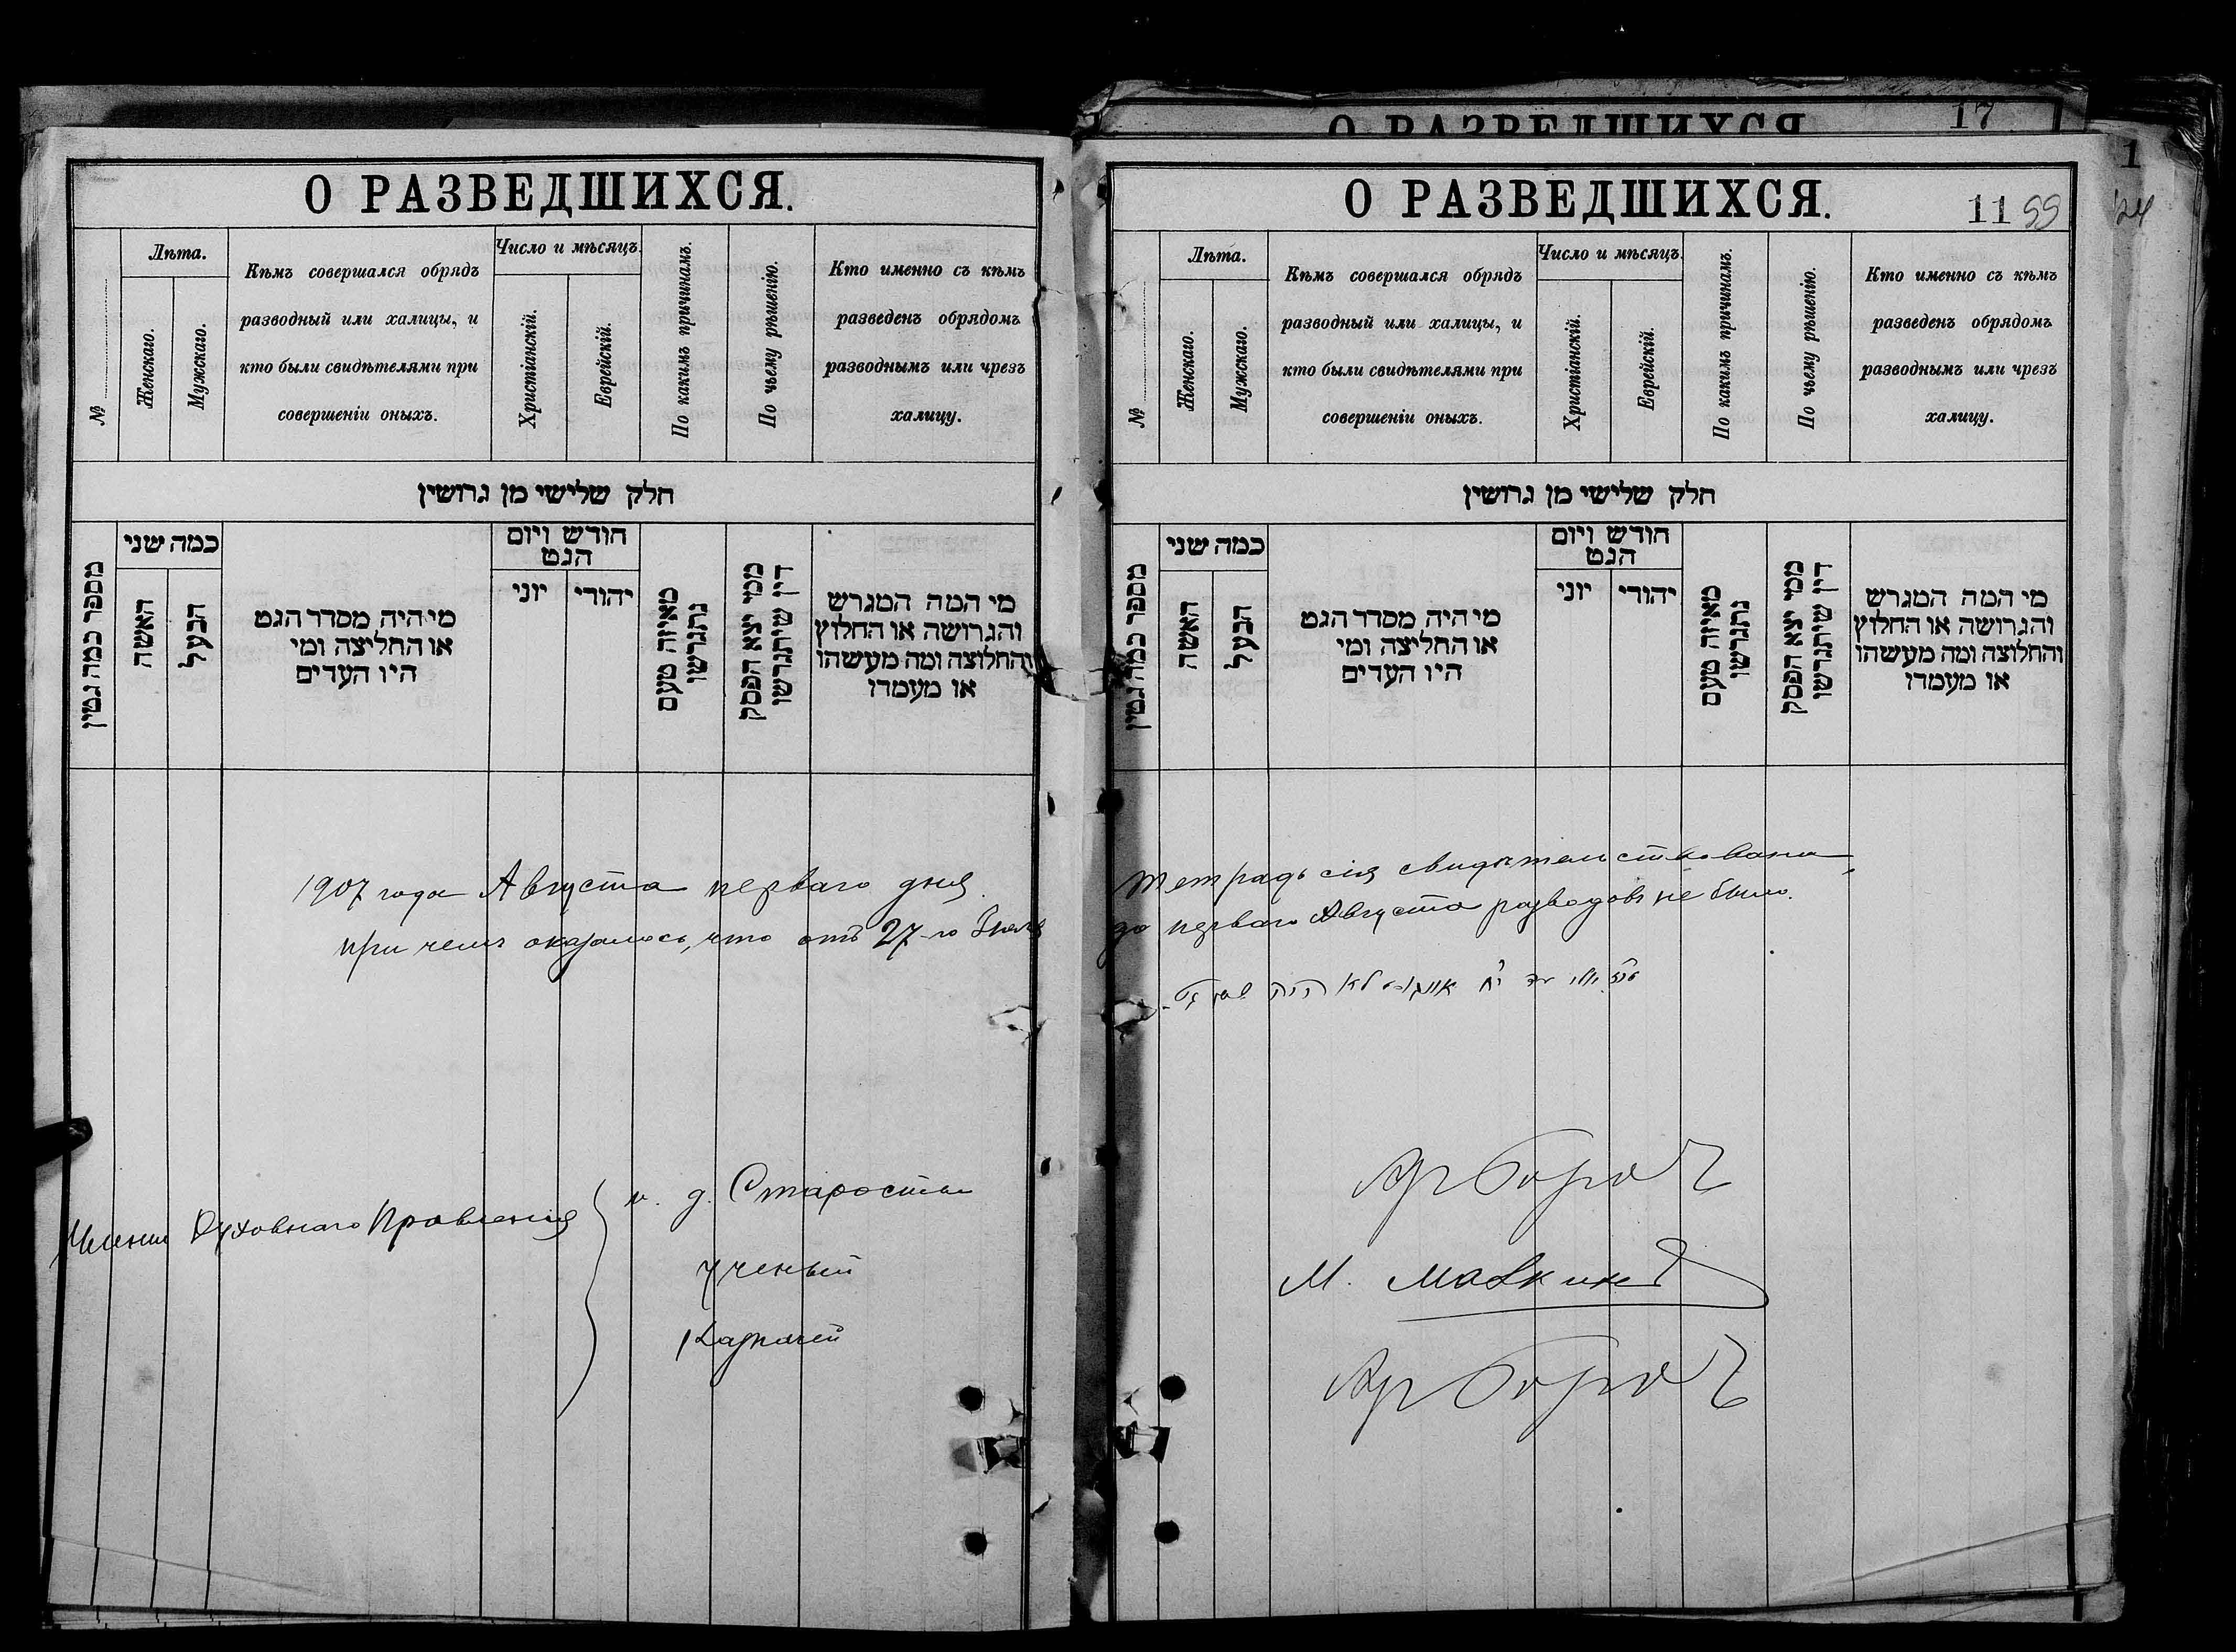 О РАЗВЕДШИХСЯ.
№
Лѣта.
Женскаго.
Мужскаго.
Кѣмъ совершался обрядъ
разводный или халицы, и
кто были свидѣтелями при
совершеніи оныхъ.
Число и мѣсяцъ.
Христіанскій.
Еврейскій.
По какимъ причинамъ.
По чьему рѣшенію.
Кто именно съ кѣмъ
разведенъ обрядомъ
разводнымъ или чрезъ
халицу.
חלק שלישי מן גרושין
מספר כמה גטין
כמה שני
האשה
הבעל
מי היה מסדר הגט
או החליצה ומי
היו העדים
חודש ויום
הגט
יוני
יהודי
מאיזה טעם
נתגרשו
ממי יצא הפסק
דין שיתגרשו
מי המה המגרש
והגרושה או החלוץ
והחלוצה ומה מעשהו
או מעמדו
1907 года Августа перваго дня
при чемъ оказалось, что отъ 27-го Іюля
Члены Духовнаго Правленія
и. д. Старосты
Ученый
Казначей
17
О РАЗВЕДШИХСЯ
1
О РАЗВЕДШИХСЯ.
11 99
№
Лѣта.
Женскаго.
Мужскаго.
Кѣмъ совершался обрядъ
разводный или халицы, и
кто были свидѣтелями при
совершеніи оныхъ.
Число и мѣсяцъ.
Христіанскій.
Еврейскій.
По какимъ причинамъ.
По чьему рѣшенію.
Кто именно съ кѣмъ
разведенъ обрядомъ
разводнымъ или чрезъ
халицу.
חלק שלישי מן גרושין
מספר כמה גטין
כמה שני
האשה
הבעל
מי היה מסדר הגט
או החליצה ומי
היו העדים
חודש ויום
הגט
יוני
יהודי
מאיזה טעם
נתגרשו
ממי יצא הפסק
דין שיתגרשו
מי המה המגרש
והגרושה או החלוץ
והחלוצה ומה מעשהו
או מעמדו
тетрадь сія свидѣтельствована,
до перваго Августа разводовъ не было.
יולי עד אווגוסט לא היה
М.